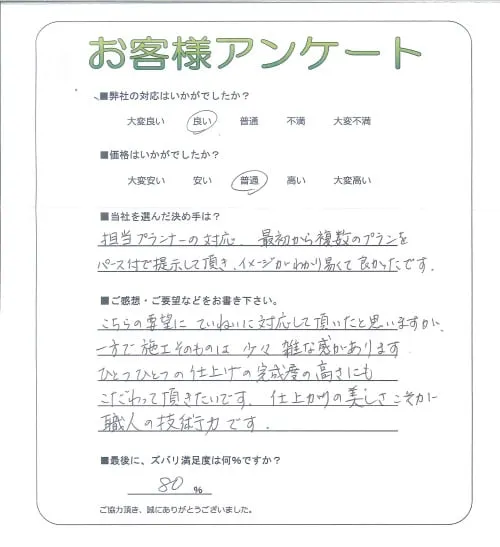 お客様アンケート
■弊社の対応はいかがでしたか？
大変良い 良い 普通 不満 大変不満
■価格はいかがでしたか？
大変安い 安い 普通 高い 大変高い
■当社を選んだ決め手は？
担当プランナーの対応、最初から複数のプランを
パース付で提示して頂き、イメージがわかり易くて良かったです。
■ご感想・ご要望などをお書き下さい。
こちらの要望に ていねいに対応して頂いたと思いますが、
一方で施工そのものは 少々 雑な感があります
ひとつひとつの仕上げの完成度の高さにも
こだわって頂きたいです。仕上がりの美しさこそが
職人の技術力です。
■最後に、ズバリ満足度は何%ですか？
80 %
ご協力頂き、誠にありがとうございました。